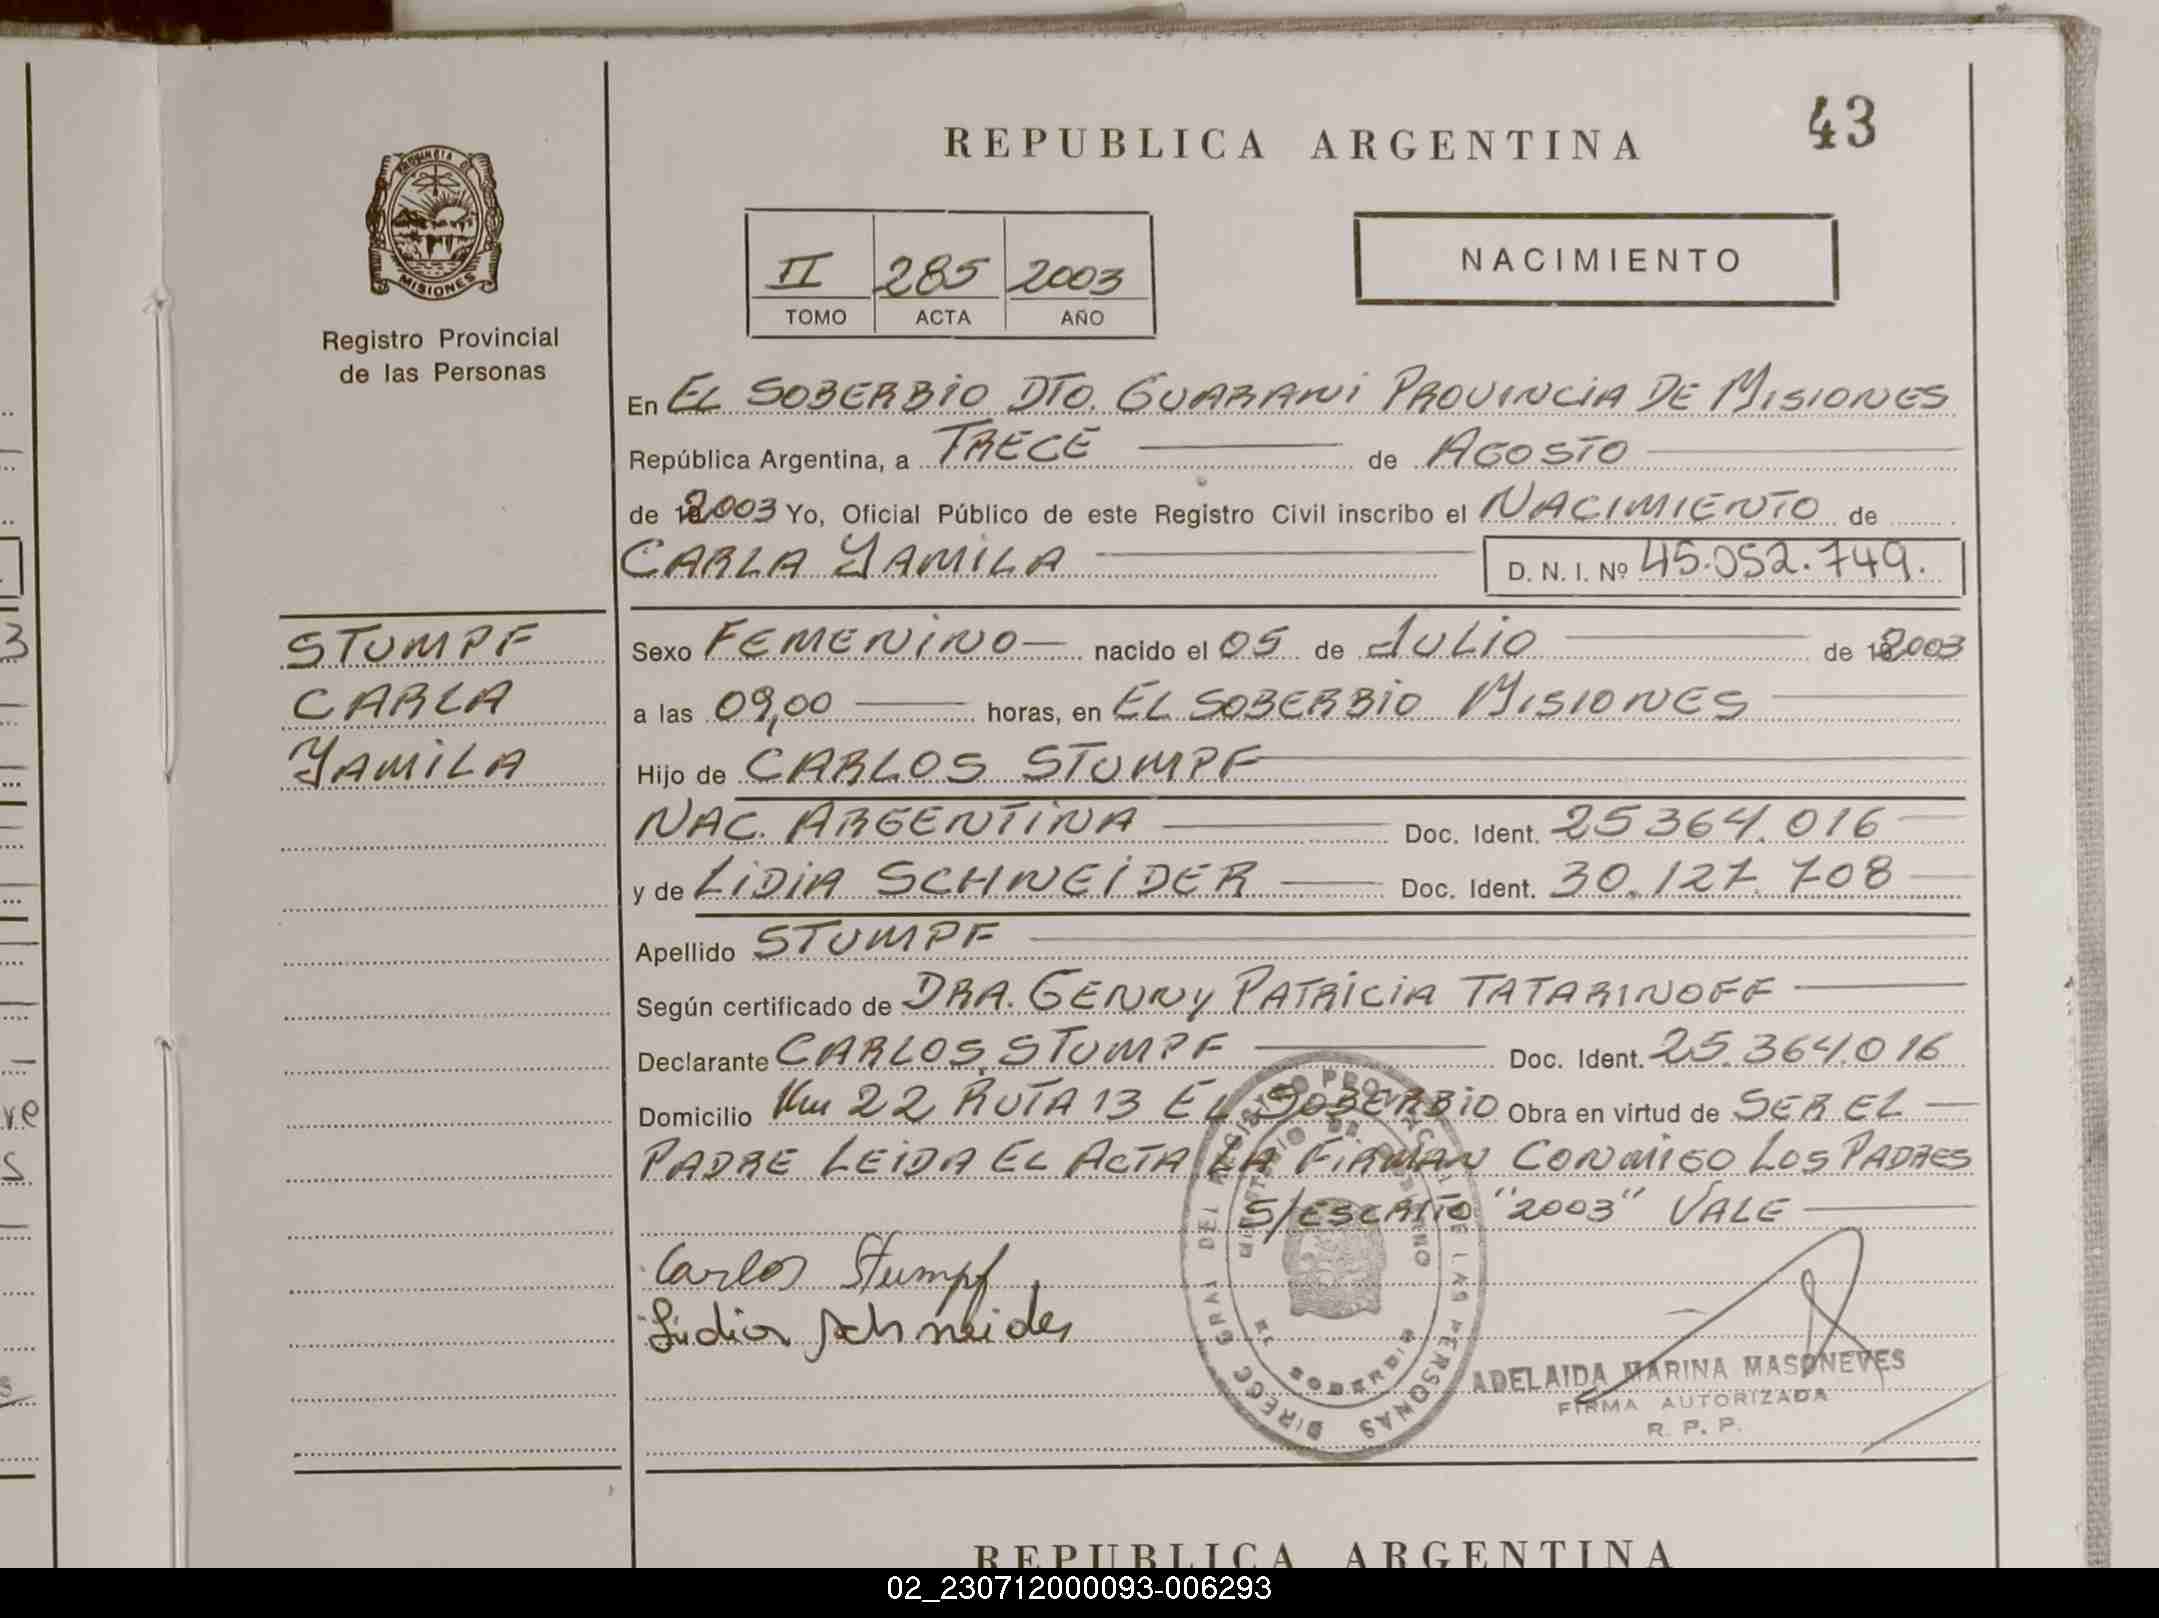 REPUBLICA ARGENTINA
43
PROVINCIA DE
MISIONES
Registro Provincial
de las Personas
II 285 2003
TOMO ACTA AÑO
NACIMIENTO
En EL SOBERBIO DTO. GUARANI PROVINCIA DE MISIONES
República Argentina, a TRECE de AGOSTO
de 2003 Yo, Oficial Público de este Registro Civil inscribo el NACIMIENTO de
CARLA YAMILA D. N. I. Nº 45.052.749.
STUMPF
CARLA
YAMILA
Sexo FEMENINO nacido el 05 de JULIO de 2003
a las 09,00 horas, en EL SOBERBIO MISIONES
Hijo de CARLOS STUMPF
NAC. ARGENTINA Doc. Ident. 25364.016
y de LIDIA SCHNEIDER Doc. Ident. 30.127.708
Apellido STUMPF
Según certificado de DRA. GENNY PATRICIA TATARINOFF
Declarante CARLOS STUMPF Doc. Ident. 25.364.016
Domicilio Km 22 RUTA 13 EL SOBERBIO Obra en virtud de SER EL
PADRE LEIDA EL ACTA LA FIRMAN CONMIGO LOS PADRES
S/ESCRITO "2003" VALE
Carlos Stumpf
Lidia Schneider
DIRECC GRAL DEL REGISTRO PROVINCIAL DE LAS PERSONAS
EL SOBERBIO
ADELAIDA MARINA MASONEVES
FIRMA AUTORIZADA
R. P. P.
REPUBLICA ARGENTINA
02_230712000093-006293